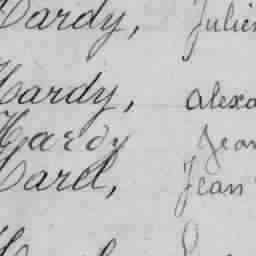 Hardy, Julien
Hardy, Alexa
Hardy Jean
Harel, Jean